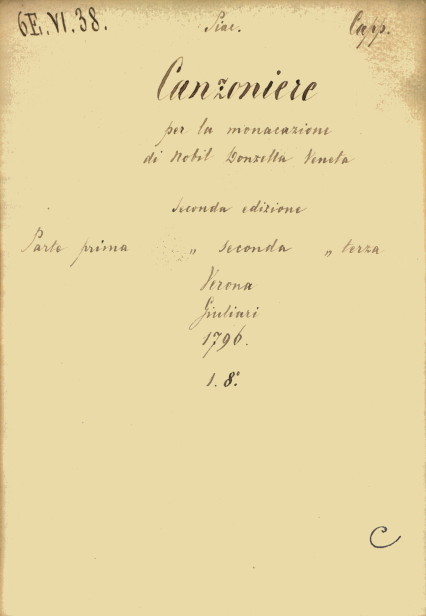 6E.VI.38. Piac. Capp.
Canzoniere
per la monacazione
di Nobil Donzella Veneta
Seconda edizione
Parte prima „ seconda „ terza
Verona
Giuliari
1796.
1. 8°.
C